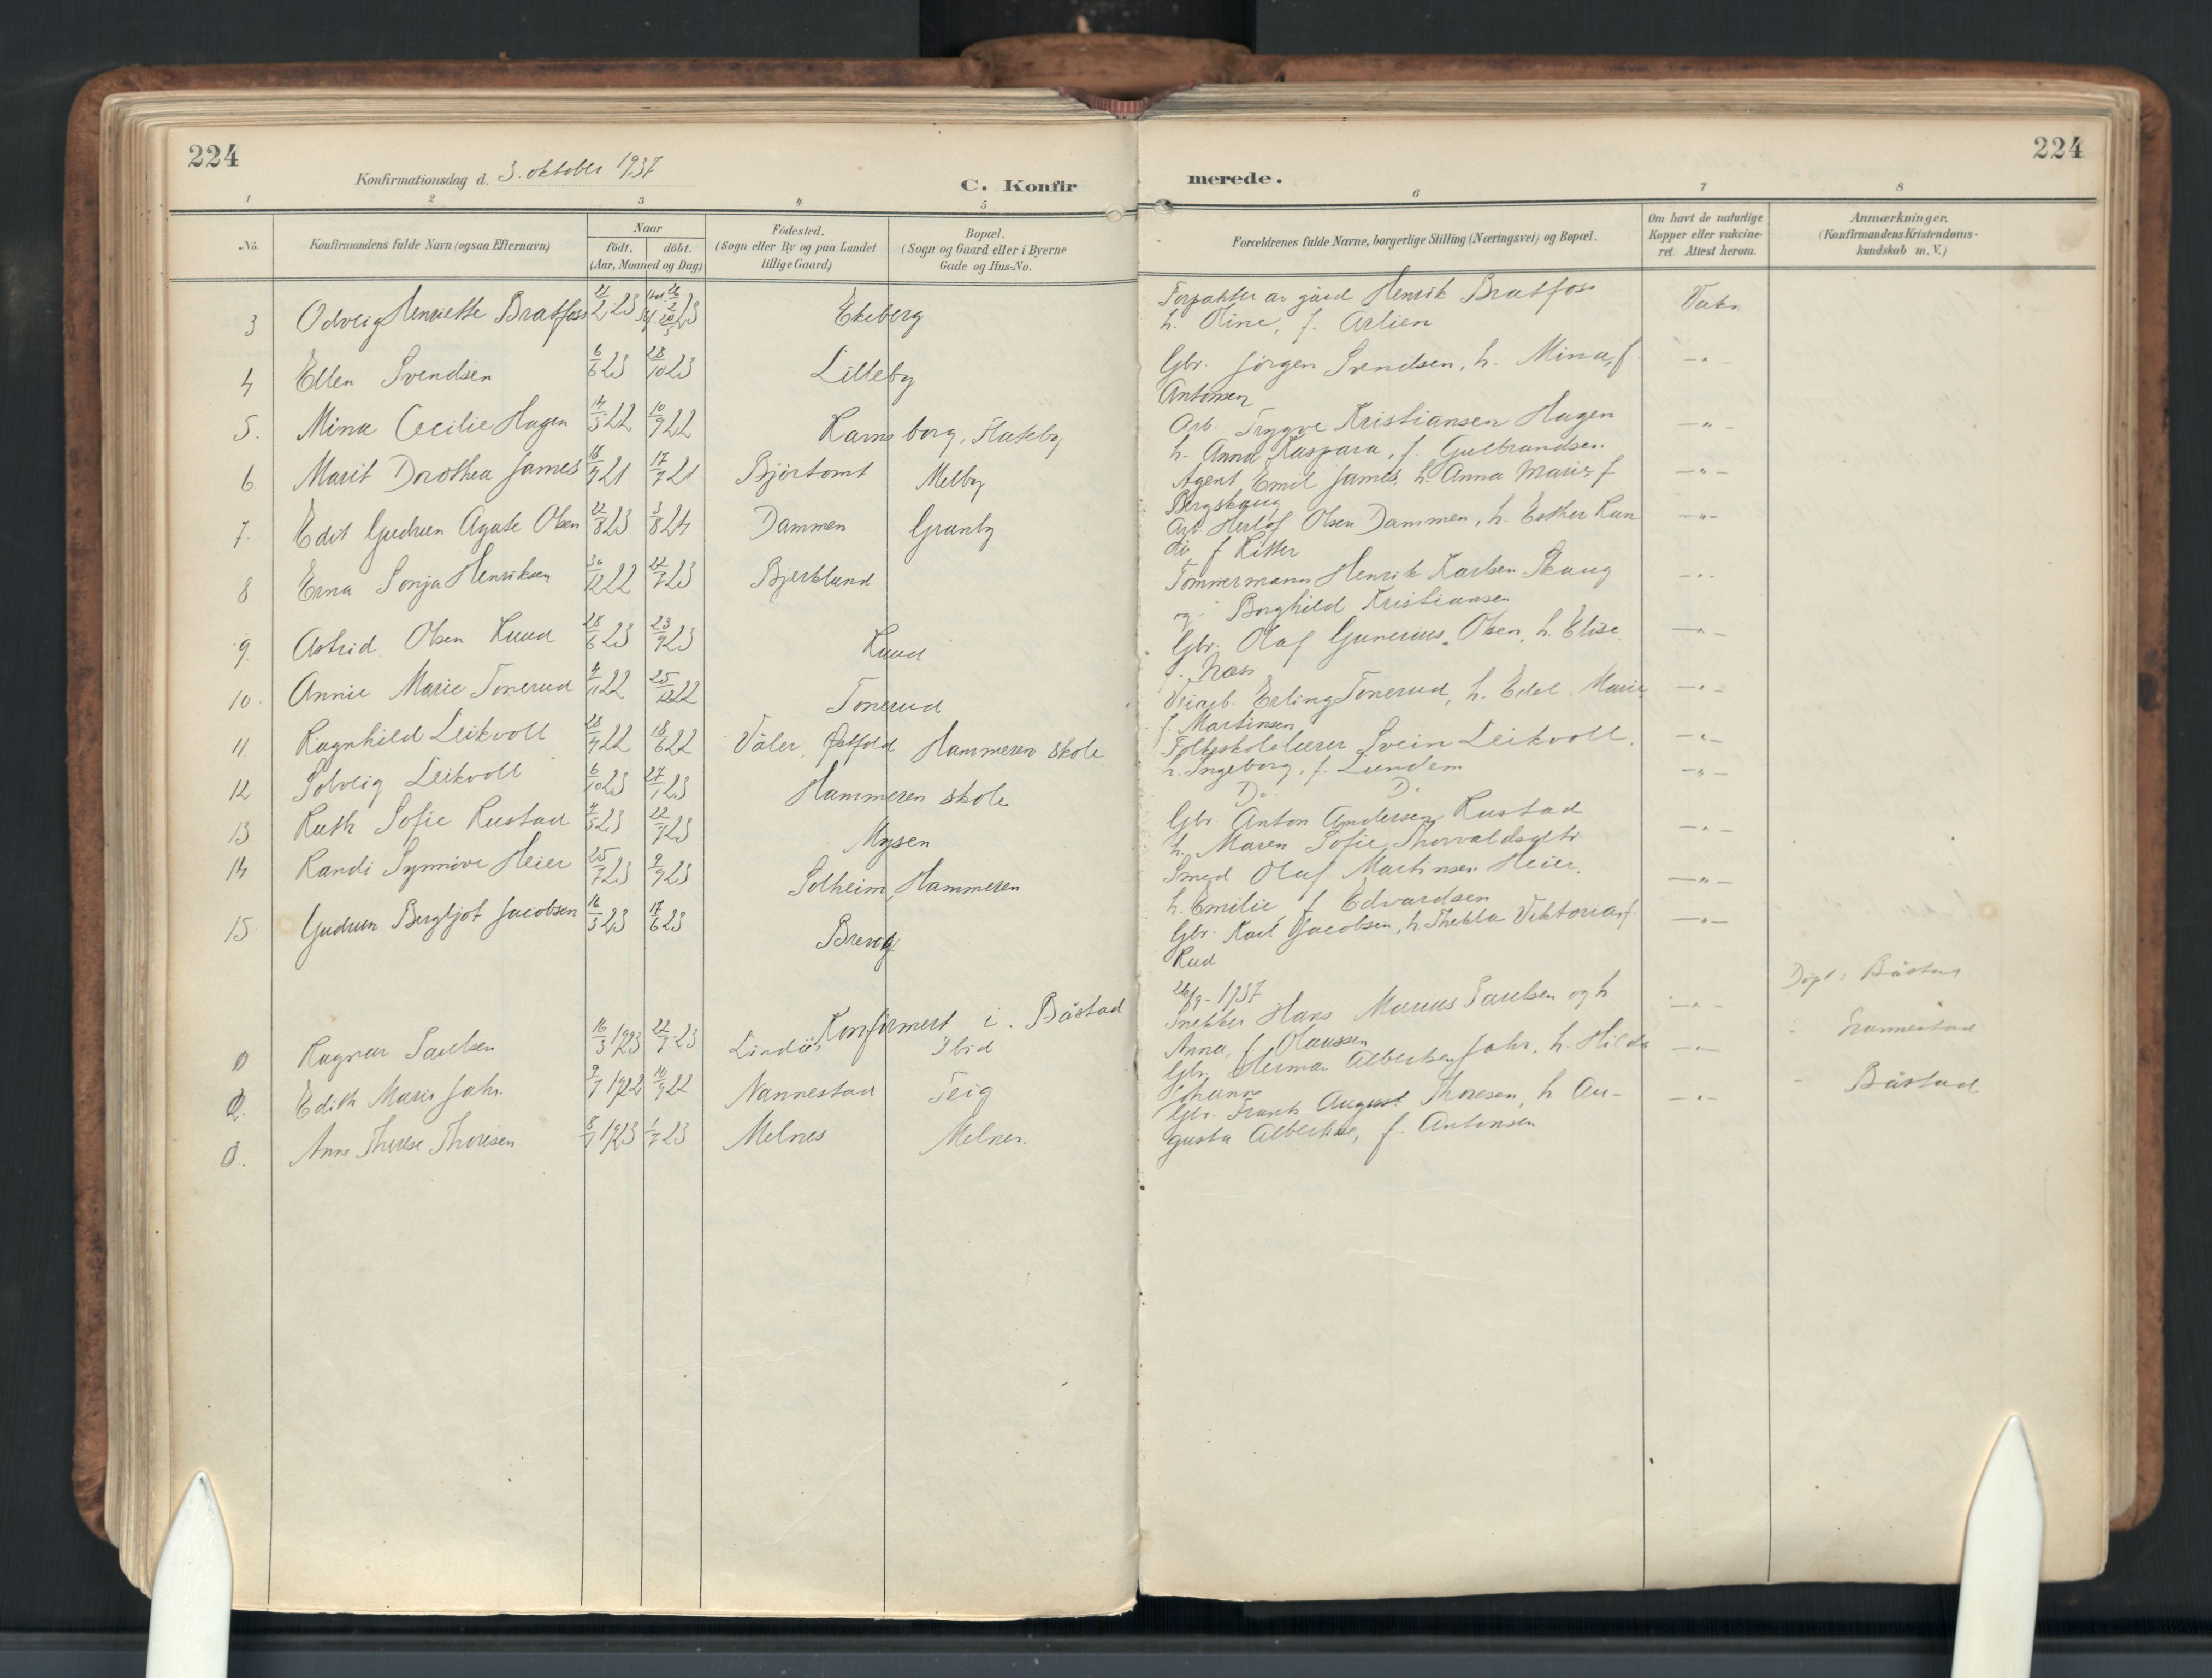 224
Konfirmationsdag d. 3. oktober 1937
C. Konfir
merede.
224
1 2 3 4 5 6 7 8
No.
Konfirmandens fulde Navn (ogsaa Efternavn)
Naar
født. døbt.
(Aar, Maaned og Dag)
Födested.
(Sogn eller By og paa Landet
tillige Gaard)
Bopæl.
(Sogn og Gaard eller i Byerne
Gade og Hus-No.
Forældrenes fulde Navne, borgerlige Stilling (Næringsvei) og Bopæl.
Om havt de naturlige
Kopper eller vakcine-
ret. Attest herom.
Anmærkninger.
(Konfirmandens Kristendoms-
kundskab m. V.)
3 Odveig Henriette Bratfoss 21/2 23 Ekeberg Forpakter av gård Henrik Bratfoss Vaks.
h. Oline, f. Arlien
4 Ellen Svendsen 6/6 23 28/10 23 Lilleby Gbr. Jørgen Svendsen, h. Mina, f. —"—
Antonsen
5. Mina Cecilie Hagen 14/5 22 10/9 22 Karns borg, Slateby Arb. Trygve Kristiansen Hagen —"—
h. Anna Kaspara, f. Gulbrandsen.
6 Marit Dorothea James 18/4 21 17/7 21 Bjørtomt Melby Agent Emil James, h. Anna Marie, f —"—
Bergskaug
7. Edit Gudrun Agate Olsen 22/8 23 3/8 24 Dammen Granby Arb. Herlof Olsen Dammen, h. Esther Ran —"—
di, f Ritter
8 Erna Sonja Henriksen 30/12 22 22/7 23 Bjerklund Tømmermann Henrik Karlsen Skaug —"—
og Borghild Kristiansen
9. Astrid Olsen Ruud 28/6 23 23/9 23 Ruud Gbr. Olaf Gunerius Olsen, h. Elise —"—
f. Næss
10. Annie Marie Tonerud 4/11 22 25/12 22 Tonerud Veiarb. Erling Tonerud, h. Edel Marie —"—
f. Martinsen
11. Ragnhild Leikvoll 28/4 22 18/6 22 Våler, Østfold Hammeren skole Folkeskolelærer Svein Leikvoll. —"—
h. Ingeborg, f. Lundem
12 Solveig Leikvoll 6/10 23 27/1 23 Hammeren skole Do. Do. —"—
13 Ruth Sofie Rustad 4/5 23 22/7 23 Mysen Gbr. Anton Andersen Rustad —"—
h. Maren Sofie Thorvaldsdtr.
14 Randi Synnøve Heier 25/7 23 9/9 23 Solheim, Hammeren Smed Olaf Martinsen Heier. —"—
h. Emilie f Edvardsen
15 Gudrun Bergljot Jacobsen 16/3 23 17/6 23 Brevig Gbr. Karl Jacobsen, h. Thekla Viktoria, f. —"—
Rud
Konfirmert i. Båstad 26/9 - 1937
Ragnar Paulsen 16/3 1923 22/7 23 Ibid Snekker Hans Marius Paulsen og h —"— Døpt: Båstad
Anna, f. Olaussen
2. Edith Marie Jahr. 9/7 1922 10/9 22 Nannestad Teig Gbr. Herman Albertsen Jahr, h. Hilda —"— Nannestad
Johanne
3. Anne Therese Thoresen 8/1 1923 1/7 23 Melnes Melnes. Gbr. Frants August Thoresen, h Au- —"— Båstad
gusta Albertine, f. Antonsen